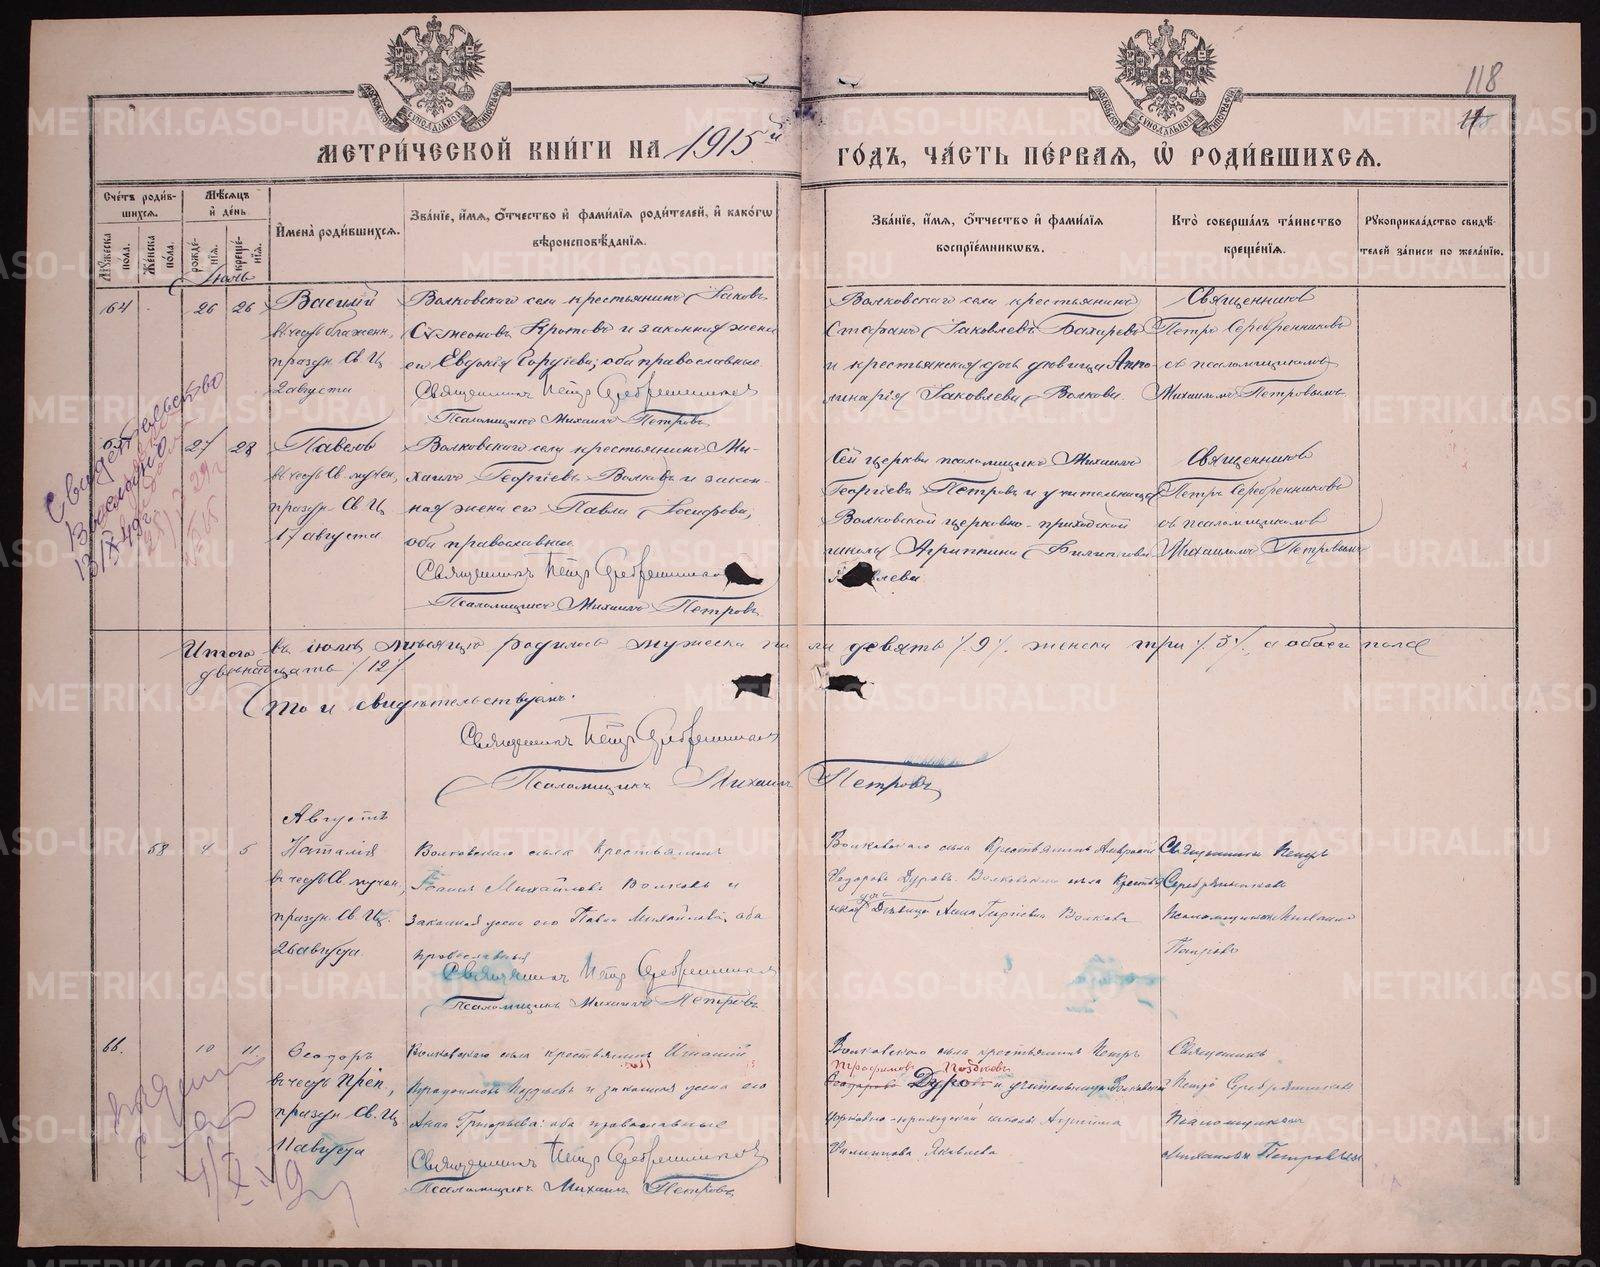 118
МЕТРИ́ЧЕСКОЙ КНИ́ГИ НА 1915й ГО́ДЪ, ЧА́СТЬ ПЕ́РВАЯ, Ѡ҆ РОДИ́ВШИХСЯ.
Сче́тъ роди́в-
шихся.
Мѣ́сяцъ
и҆ де́нь
И҆мена̀ роди́вшихся.
Зва́нїе, и҆́мя, ѻ҆́тчество и҆ фами́лїя роди́телей, и҆ како́гѡ
вѣроисповѣ́данїя.
Зва́нїе, и҆́мя, ѻ҆́тчество и҆ фами́лїя
воспрїе́мникѡвъ.
Кто̀ соверша́лъ та́инство
креще́нїя.
Рꙋкоприкла́дство свидѣ́-
телей за́писи по жела́нїю.
Мꙋ́жеска по́ла.
Же́нска по́ла.
рожде́нїя.
креще́нїя.
Іюль
64 26 26 Василій
въ честь блаженн,
праздн. Св. Ц
2 августа
Волковскаго села крестьянинъ Іаковъ
Сѵмеоновъ и законная жена
его Евдокія Сергіева; оба православные
Священникъ Петръ Серебренниковъ
Псаломщикъ Михаилъ Петровъ
Волковскаго села крестьянинъ
Стефанъ Іаковлевъ Бахаревъ
и крестьянская дочь дѣвица Апол-
линарія Іаковлева Волкова.
Священникъ
Петръ Серебренниковъ
съ псаломщикомъ
Михаиломъ Петровымъ.
Свидѣтельство
27 28 Павелъ
въ честь Св. мучен,
праздн. Св. Ц
17 августа
Волковскаго села крестьянинъ Ми-
хаилъ Георгіевъ Волковъ и закон-
ная жена его Павла Іосифова,
оба православные
Священникъ Петръ Серебренниковъ
Псаломщикъ Михаилъ Петровъ
Сей церкви псаломщикъ Михаилъ
Георгіевъ Петровъ и учительница
Волковской церковно-приходской
школы Агриппина Филиппова
Яковлева
Священникъ
Петръ Серебренниковъ
съ псаломщикомъ
Михаиломъ Петровымъ
Итого въ іюлѣ мѣсяцѣ родилось мужеска пола девять /9/, женска три /3/, а обоего пола
двѣнадцать /12/
Что и свидѣтельствуемъ:
Священникъ Петръ Серебренниковъ
Псаломщикъ Михаилъ Петровъ
Августъ
58 4 5 Наталія
въ честь Св. мучен,
праздн. Св. Ц.
26 августа
Волковскаго села крестьянинъ
Михайловъ Волковъ и
законная жена его Павла Михайлова, оба
православные
Священникъ Петръ Серебренниковъ
Псаломщикъ Михаилъ Петровъ
Волковскаго села крестьянинъ Амвросій
Ѳедоровъ Дуровъ. Волковскаго села крестьян-
ская дочь Дѣвица Анна Георгіевна Волкова
Священникъ Петръ
Серебренниковъ
Псаломщикомъ Михаиломъ
Петровъ
66. 10 11 Ѳеодоръ
въ честь Преп,
праздн. Св. Ц
11 августа
Волковскаго села крестьянинъ Игнатій
и законная жена его
Анна Григорьева оба православные
Священникъ Петръ Серебренниковъ
Псаломщикъ Михаилъ Петровъ
Волковскаго села крестьянинъ Петръ
Трофимовъ Поздѣевъ
Ѳеодоровъ Дуровъ и учительница Волковской
церковно-приходской школы Агриппина
Филиппова Яковлева
Священникъ
Петръ Серебренниковъ
Псаломщикомъ
Михаиломъ Петровымъ
METRIKI.GASO-URAL.RU